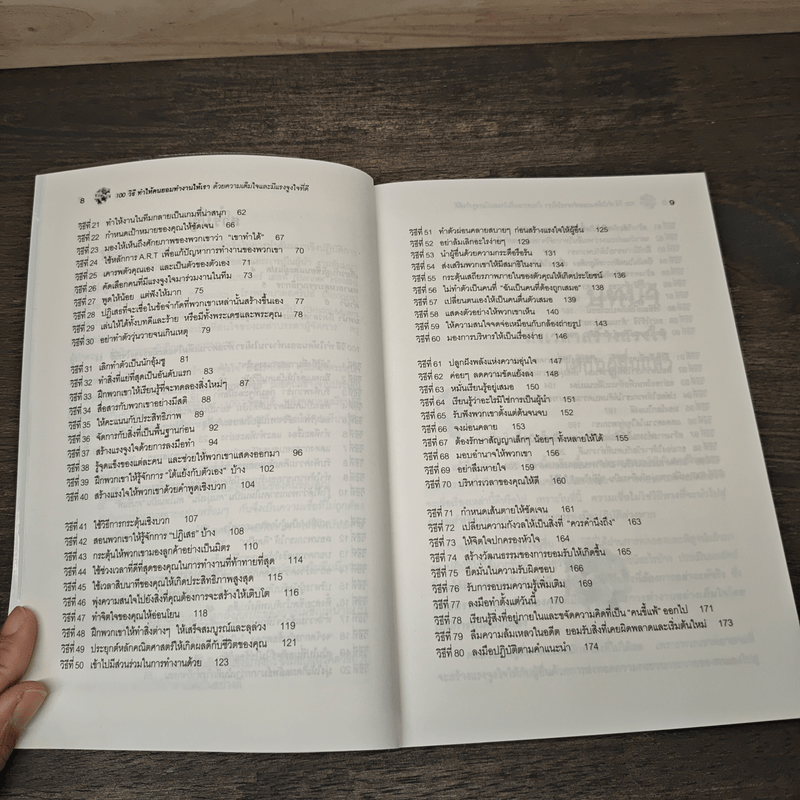 8 100 วิธี ทำให้คนยอมทำงานให้เรา ด้วยความเต็มใจและมีแรงจูงใจที่ดี
วิธีที่ 21 ทำให้งานในทีมกลายเป็นเกมที่น่าสนุก 62
วิธีที่ 22 กำหนดเป้าหมายของคุณให้ชัดเจน 66
วิธีที่ 23 มองให้เห็นถึงศักยภาพของพวกเขาว่า "เขาทำได้" 67
วิธีที่ 24 ใช้หลักการ A.R.T เพื่อแก้ปัญหาการทำงานของพวกเขา 70
วิธีที่ 25 เคารพตัวคุณเอง และเป็นตัวของตัวเอง 71
วิธีที่ 26 คัดเลือกคนที่มีแรงจูงใจมาร่วมงานในทีม 73
วิธีที่ 27 พูดให้น้อย แต่ฟังให้มาก 75
วิธีที่ 28 ปฏิเสธที่จะเชื่อในข้อจำกัดที่พวกเขาเหล่านั้นสร้างขึ้นเอง 77
วิธีที่ 29 เล่นให้ได้ทั้งบทดีและร้าย หรือมีทั้งพระเดชและพระคุณ 78
วิธีที่ 30 อย่าทำตัววุ่นวายจนเกินเหตุ 79
วิธีที่ 31 เลิกทำตัวเป็นนักอุ้มชู 81
วิธีที่ 32 ทำสิ่งที่แย่ที่สุดเป็นอันดับแรก 83
วิธีที่ 33 ฝึกพวกเขาให้เรียนรู้ที่จะทดลองสิ่งใหม่ๆ 87
วิธีที่ 34 สื่อสารกับพวกเขาอย่างมีสติ 88
วิธีที่ 35 ให้คะแนนกับประสิทธิภาพ 89
วิธีที่ 36 จัดการกับสิ่งที่เป็นพื้นฐานก่อน 92
วิธีที่ 37 สร้างแรงจูงใจด้วยการลงมือทำ 94
วิธีที่ 38 รู้จุดแข็งของแต่ละคน และช่วยให้พวกเขาแสดงออกมา 96
วิธีที่ 39 ฝึกพวกเขาให้รู้จักการ "โต้แย้งกับตัวเอง" บ้าง 102
วิธีที่ 40 สร้างแรงใจให้พวกเขาด้วยคำพูดเชิงบวก 104
วิธีที่ 41 ใช้วิธีการกระตุ้นเชิงบวก 107
วิธีที่ 42 สอนพวกเขาให้รู้จักการ "ปฏิเสธ" บ้าง 108
วิธีที่ 43 กระตุ้นให้พวกเขามองลูกค้าอย่างเป็นมิตร 110
วิธีที่ 44 ใช้ช่วงเวลาที่ดีที่สุดของคุณในการทำงานที่ท้าทายที่สุด 114
วิธีที่ 45 ใช้เวลาสิบนาทีของคุณให้เกิดประสิทธิภาพสูงสุด 115
วิธีที่ 46 พุ่งความสนใจไปยังสิ่งที่คุณต้องการจะสร้างให้เติบโต 116
วิธีที่ 47 ทำจิตใจของคุณให้อ่อนโยน 118
วิธีที่ 48 ฝึกพวกเขาให้ทำสิ่งต่างๆ ให้เสร็จสมบูรณ์และลุล่วง 119
วิธีที่ 49 ประยุกต์หลักคณิตศาสตร์ให้เกิดผลดีกับชีวิตของคุณ 121
วิธีที่ 50 เข้าไปมีส่วนร่วมในการทำงานด้วย 123
9
วิธีที่ 51 ทำตัวผ่อนคลายสบายๆ ก่อนสร้างแรงใจให้ผู้อื่น 125
วิธีที่ 52 อย่าล้มเลิกอะไรง่ายๆ 129
วิธีที่ 53 นำผู้อื่นด้วยความกระตือรือร้น 131
วิธีที่ 54 ส่งเสริมพวกเขาให้มีสมาธิในงาน 134
วิธีที่ 55 กระตุ้นเสถียรภาพภายในของตัวคุณให้เกิดประโยชน์ 136
วิธีที่ 56 ไม่ทำตัวเป็นคนที่ "ฉันเป็นคนที่ต้องถูกเสมอ" 138
วิธีที่ 57 เปลี่ยนตนเองให้เป็นคนตื่นตัวเสมอ 139
วิธีที่ 58 แสดงตัวอย่างให้พวกเขาเห็น 140
วิธีที่ 59 ให้ความสนใจจดจ่อเหมือนกับกล้องถ่ายรูป 143
วิธีที่ 60 มองการบริหารให้เป็นเรื่องง่าย 146
วิธีที่ 61 ปลูกฝังพลังแห่งความอุ่นใจ 147
วิธีที่ 62 ค่อยๆ ลดความขัดแย้งลง 148
วิธีที่ 63 หมั่นเรียนรู้อยู่เสมอ 150
วิธีที่ 64 เรียนรู้ว่าอะไรมิใช่การเป็นผู้นำ 151
วิธีที่ 65 รับฟังพวกเขาตั้งแต่ต้นจนจบ 152
วิธีที่ 66 จงผ่อนคลาย 153
วิธีที่ 67 ต้องรักษาสัญญาเล็กๆ น้อยๆ ทั้งหลายให้ได้ 155
วิธีที่ 68 มอบอำนาจให้พวกเขา 156
วิธีที่ 69 อย่าลืมหายใจ 159
วิธีที่ 70 บริหารเวลาของคุณให้ดี 160
วิธีที่ 71 กำหนดเส้นตายให้ชัดเจน 161
วิธีที่ 72 เปลี่ยนความกังวลให้เป็นสิ่งที่ "ควรคำนึงถึง" 163
วิธีที่ 73 ให้จิตใจปกครองหัวใจ 164
วิธีที่ 74 สร้างวัฒนธรรมของการยอมรับให้เกิดขึ้น 165
วิธีที่ 75 ยึดมั่นในความรับผิดชอบ 166
วิธีที่ 76 รับการอบรมความรู้เพิ่มเติม 169
วิธีที่ 77 ลงมือทำตั้งแต่วันนี้ 170
วิธีที่ 78 เรียนรู้สิ่งที่อยู่ภายในและขจัดความคิดที่เป็น "คนขี้แพ้" ออกไป 171
วิธีที่ 79 ลืมความล้มเหลวในอดีต ยอมรับสิ่งที่เคยผิดพลาดและเริ่มต้นใหม่ 173
วิธีที่ 80 ลงมือปฏิบัติตามคำแนะนำ 174